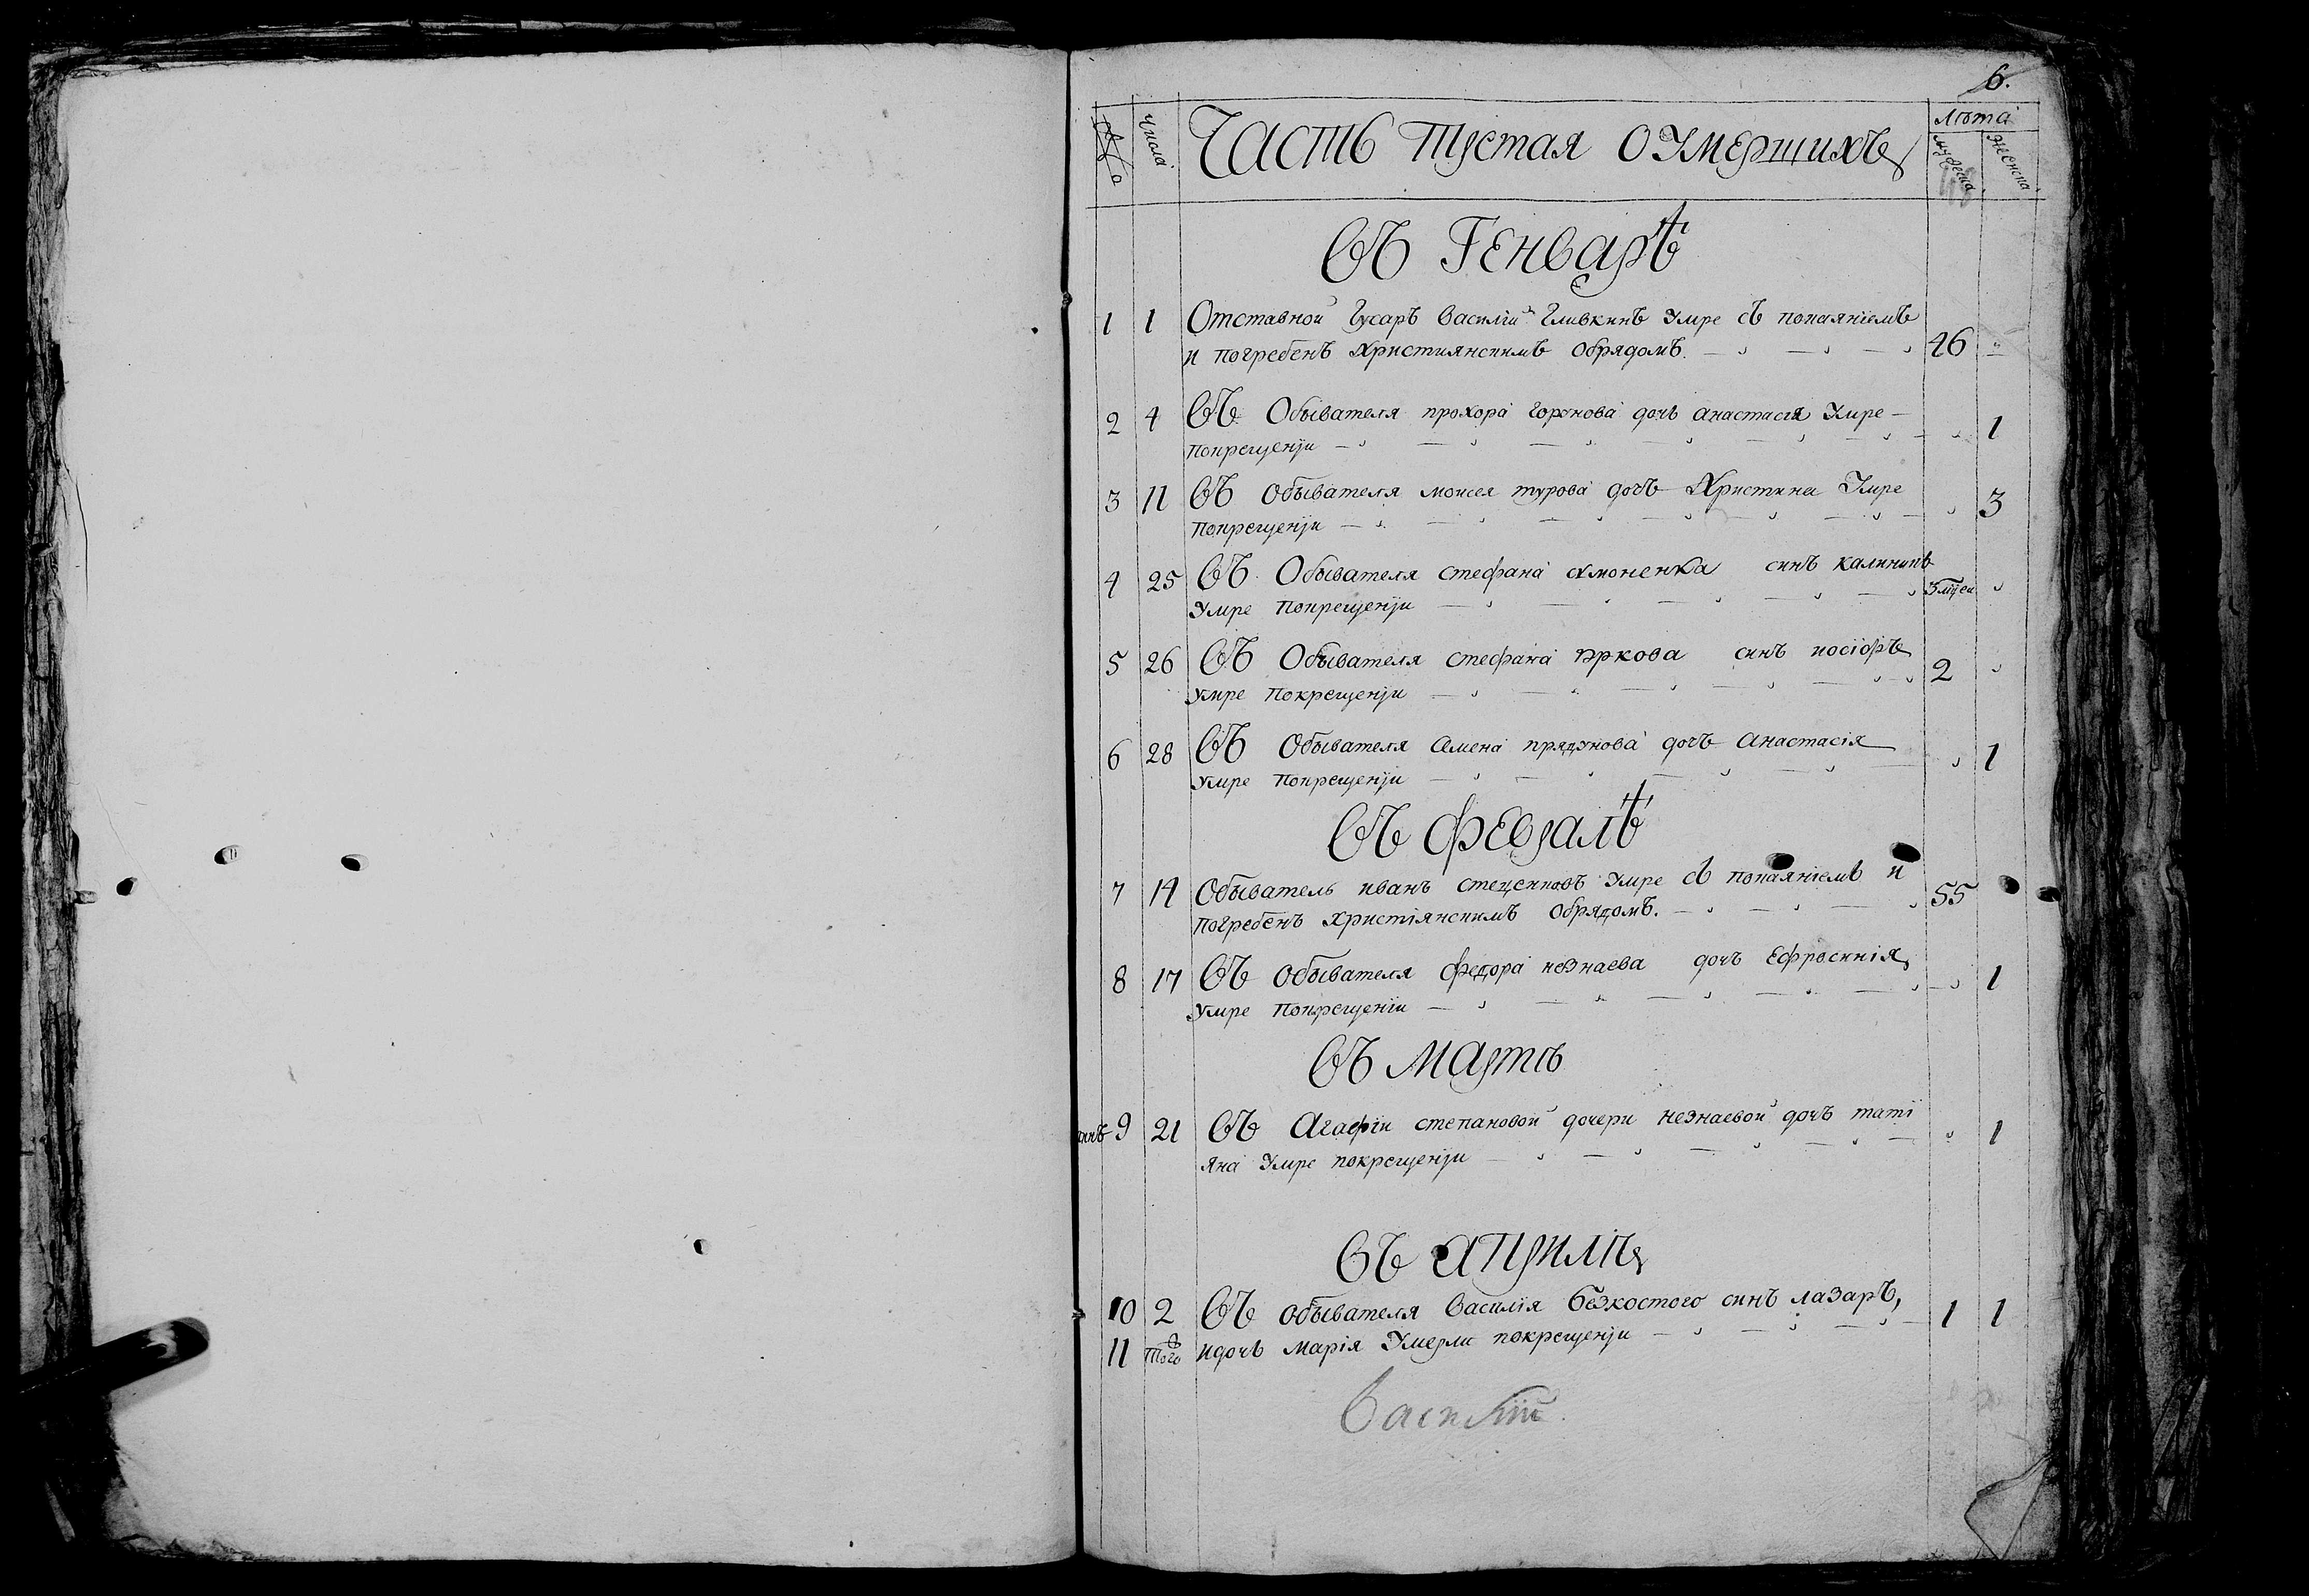 6.
№
Числа
Часть Третая О Умерщихъ
лѣта
мужеска
женска
Въ Генварѣ
1 1 Отставной Гусаръ Василій Гливкинъ Умре съ покаяніемъ
и погребенъ Християнскимъ Обрядомъ. 46
2 4 Въ Обывателя прохора горэнова дочъ анастасія Умре
покрещеніи 1
3 11 Въ Обывателя моисея турова дочъ Христина Умре
покрещеніи 3
4 25 Въ Обывателя стефана синъ калиникъ
Умре покрещеніи 3 мцеи
5 26 Въ Обывателя стефана синъ иосіфъ
умре покрещеніи 2
6 28 Въ Обывателя Семена дочъ Анастасія
умре покрещеніи 1
Въ Февралѣ
7 14 Обыватель иванъ стеценковъ Умре съ покаяніемъ и
погребенъ христіянскимъ обрядомъ. 55
8 17 Въ обывателя федора незнаева дочъ Ефросинія
умре покрещеніи 1
Въ Мартѣ
9 21 Въ Агафіи степановой дочери незнаевой дочъ таті
яна Умре покрещеніи 1
Въ Априлѣ
10 2 Въ обывателя Василія безкостого синъ лазаръ, 1 1
11 того идочъ марія Умерли покрещеніи